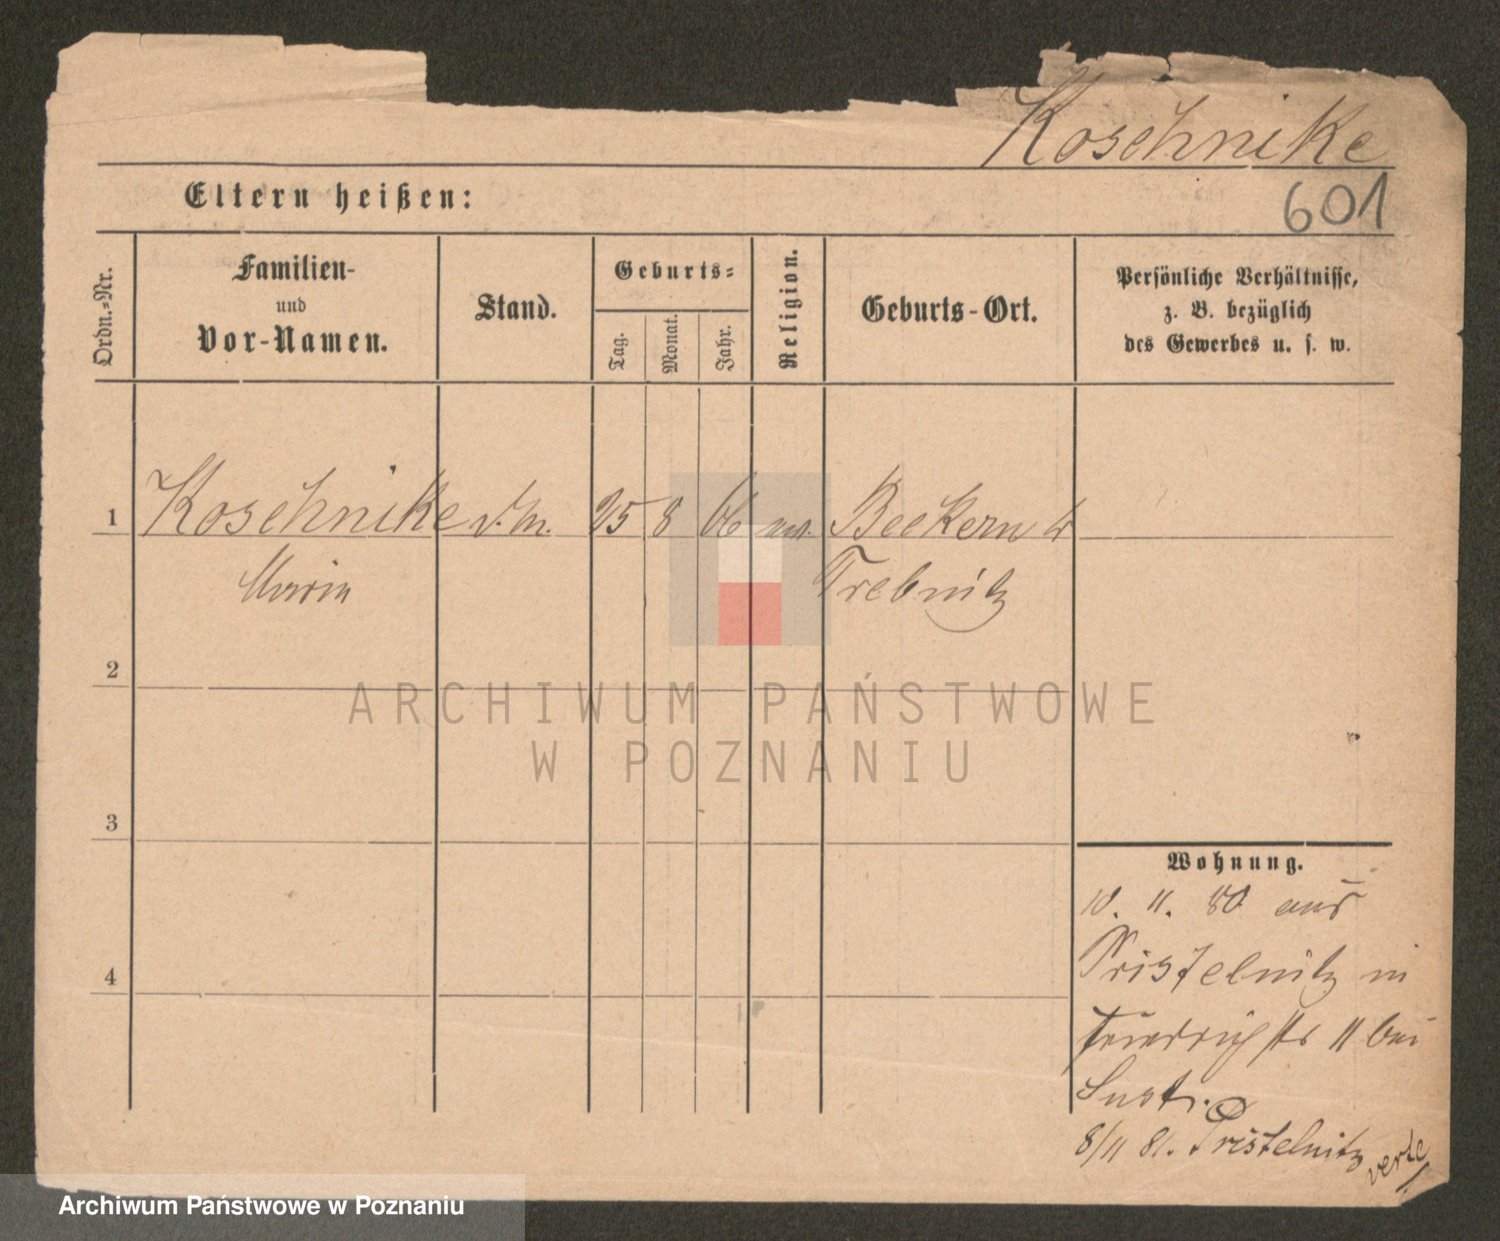 Koschnike
601
Eltern heißen:
Ordn.-Nr.
Familien-
und
Vor-Namen.
Stand.
Geburts-
Tag.
Monat.
Jahr.
Religion.
Geburts-Ort.
Persönliche Verhältnisse,
z. B. bezüglich
des Gewerbes u. s. w.
1 Koschnike d. m. 25 8 66 Beekern
Maria Trebnitz
2
3
4
Wohnung.
10. 11. 80 aus
Pristelnitz in
Friedrichstr 11 bei
8/11 81. Pristelnitz
verte
ARCHIWUM PAŃSTWOWE
W POZNANIU
Archiwum Państwowe w Poznaniu